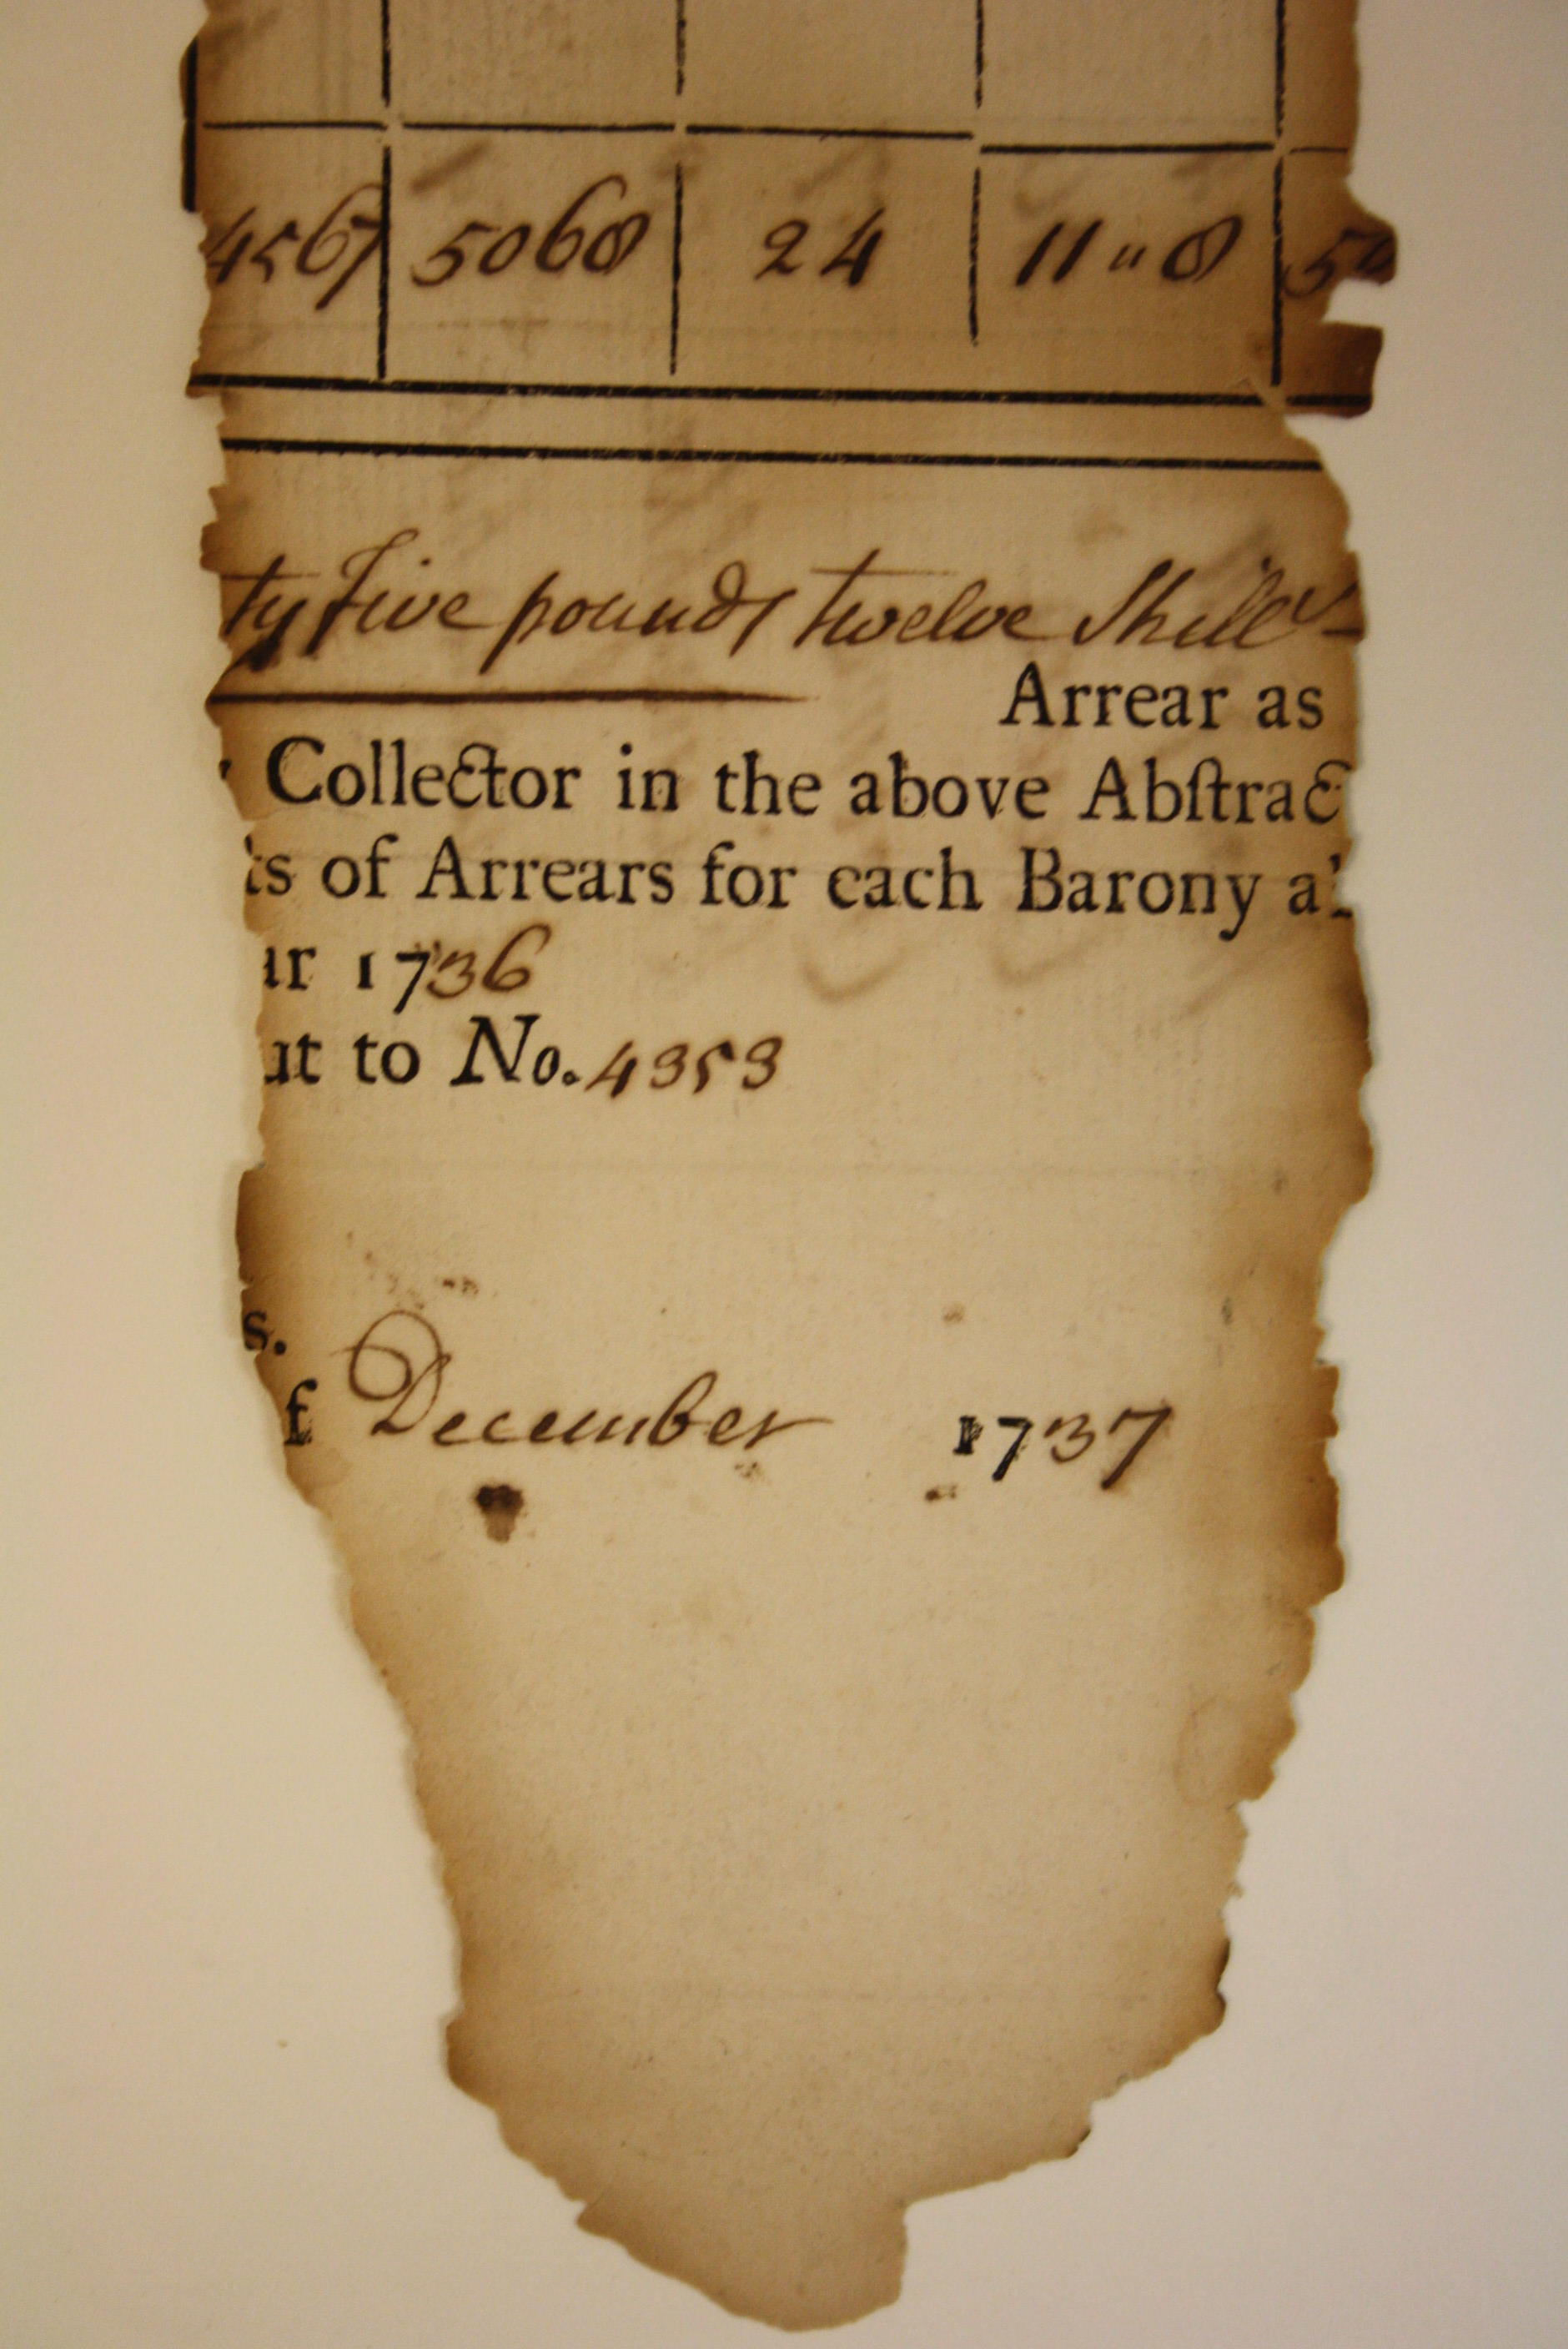 4567 5060 24 11 " 8 50
ty Five pounds twelve Shills
Arrear as
Collector in the above Abſtrac
ts of Arrears for each Barony a
ar 1736
ut to No. 4353
s.
f December 1737